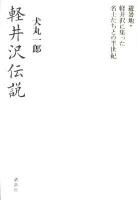 避暑地・
軽井沢に集った
名士たちとの半世紀
犬丸一郎
軽井沢伝説
講談社